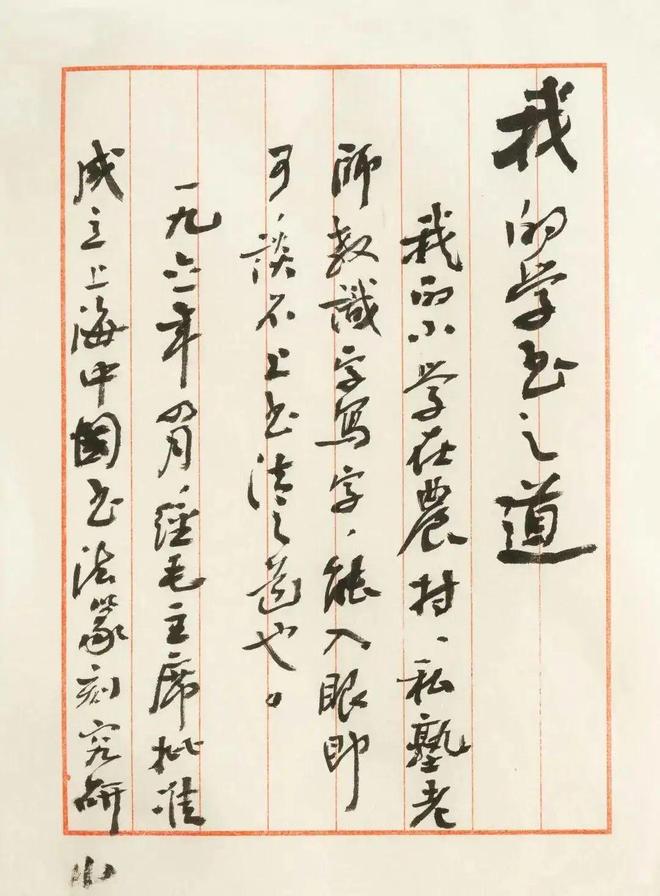 我的学书之道
我的小学在農村、私塾老
師教識字写字，能入眼即
可，談不上书法之道也。
一九六一年四月，經毛主席批准
成立上海中国书法篆刻究研